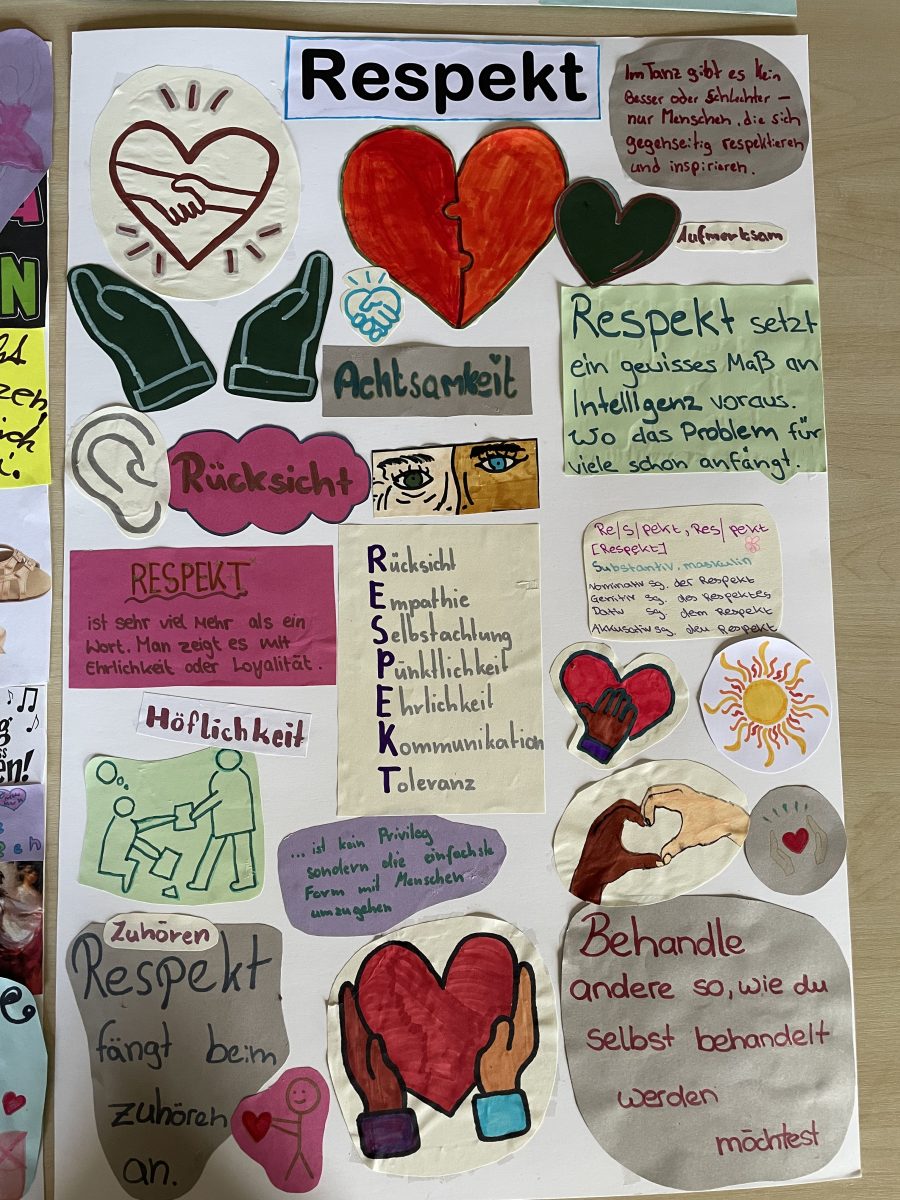 Respekt
Im Tanz gibt es kein
Besser oder Schlechter –
nur Menschen, die sich
gegenseitig respektieren
und inspirieren.
Aufmerksam
Respekt setzt
ein gewisses Maß an
Intelligenz voraus.
Wo das Problem für
viele schon anfängt.
Achtsamkeit
Rücksicht
RESPEKT
ist sehr viel mehr als ein
Wort. Man zeigt es mit
Ehrlichkeit oder Loyalität.
Rücksicht
Empathie
Selbstachtung
Pünktlichkeit
Ehrlichkeit
Kommunikation
Toleranz
Re/s/pekt, Res/pekt
[Respekt]
Substantiv, maskulin
Nominativ sg. der Respekt
Genitiv sg. des Respektes
Dativ sg. dem Respekt
Akkusativ sg. den Respekt
Höflichkeit
... ist kein Privileg
sondern die einfachste
Form mit Menschen
umzugehen
Zuhören
Respekt
fängt beim
zuhören
an.
Behandle
andere so, wie du
selbst behandelt
werden
möchtest
N